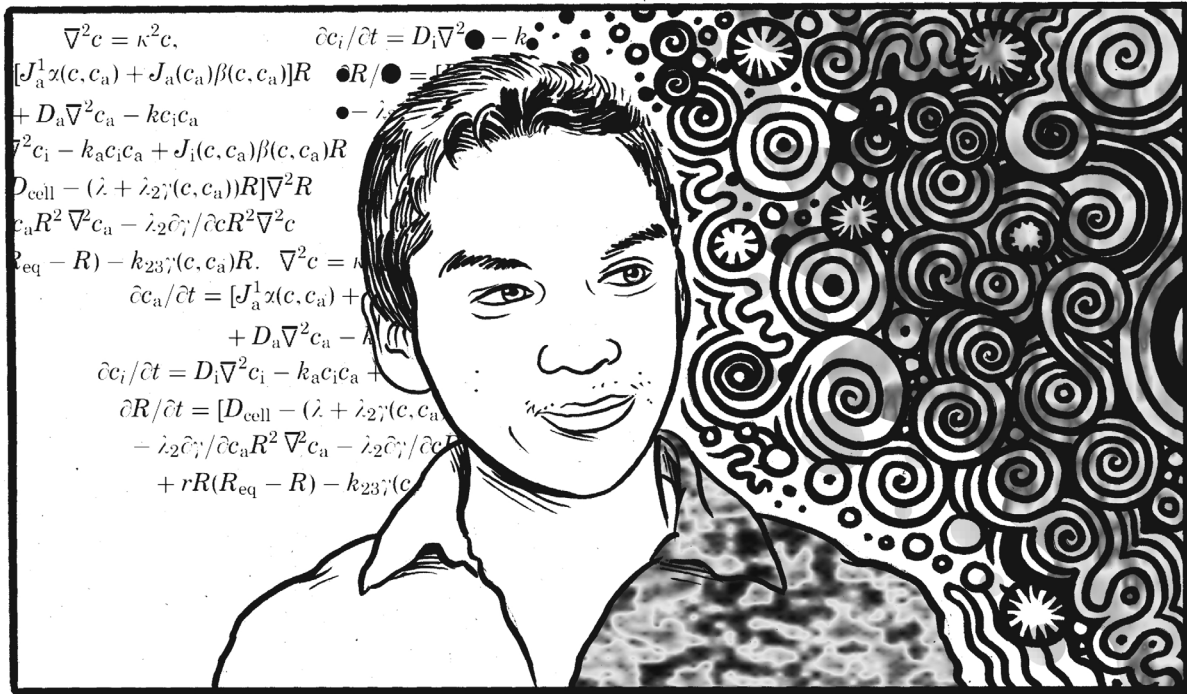 ∇²c = κ²c, ∂cᵢ/∂t = Dᵢ∇² − k
[Jₐ¹α(c, cₐ) + Jₐ(cₐ)β(c, cₐ)]R ∂R/ = [
+ Dₐ∇²cₐ − kcᵢcₐ − λ
∇²cᵢ − kₐcᵢcₐ + Jᵢ(c, cₐ)β(c, cₐ)R
D_cell − (λ + λ₂γ(c, cₐ))R]∇²R
cₐR² ∇²cₐ − λ₂∂γ/∂cR²∇²c
R_eq − R) − k₂₃γ(c, cₐ)R. ∇²c = κ
∂cₐ/∂t = [Jₐ¹α(c, cₐ) +
+ Dₐ∇²cₐ − k
∂cᵢ/∂t = Dᵢ∇²cᵢ − kₐcᵢcₐ +
∂R/∂t = [D_cell − (λ + λ₂γ(c, cₐ
− λ₂∂γ/∂cₐR² ∇²cₐ − λ₂∂γ/∂cR
+ rR(R_eq − R) − k₂₃γ(c,